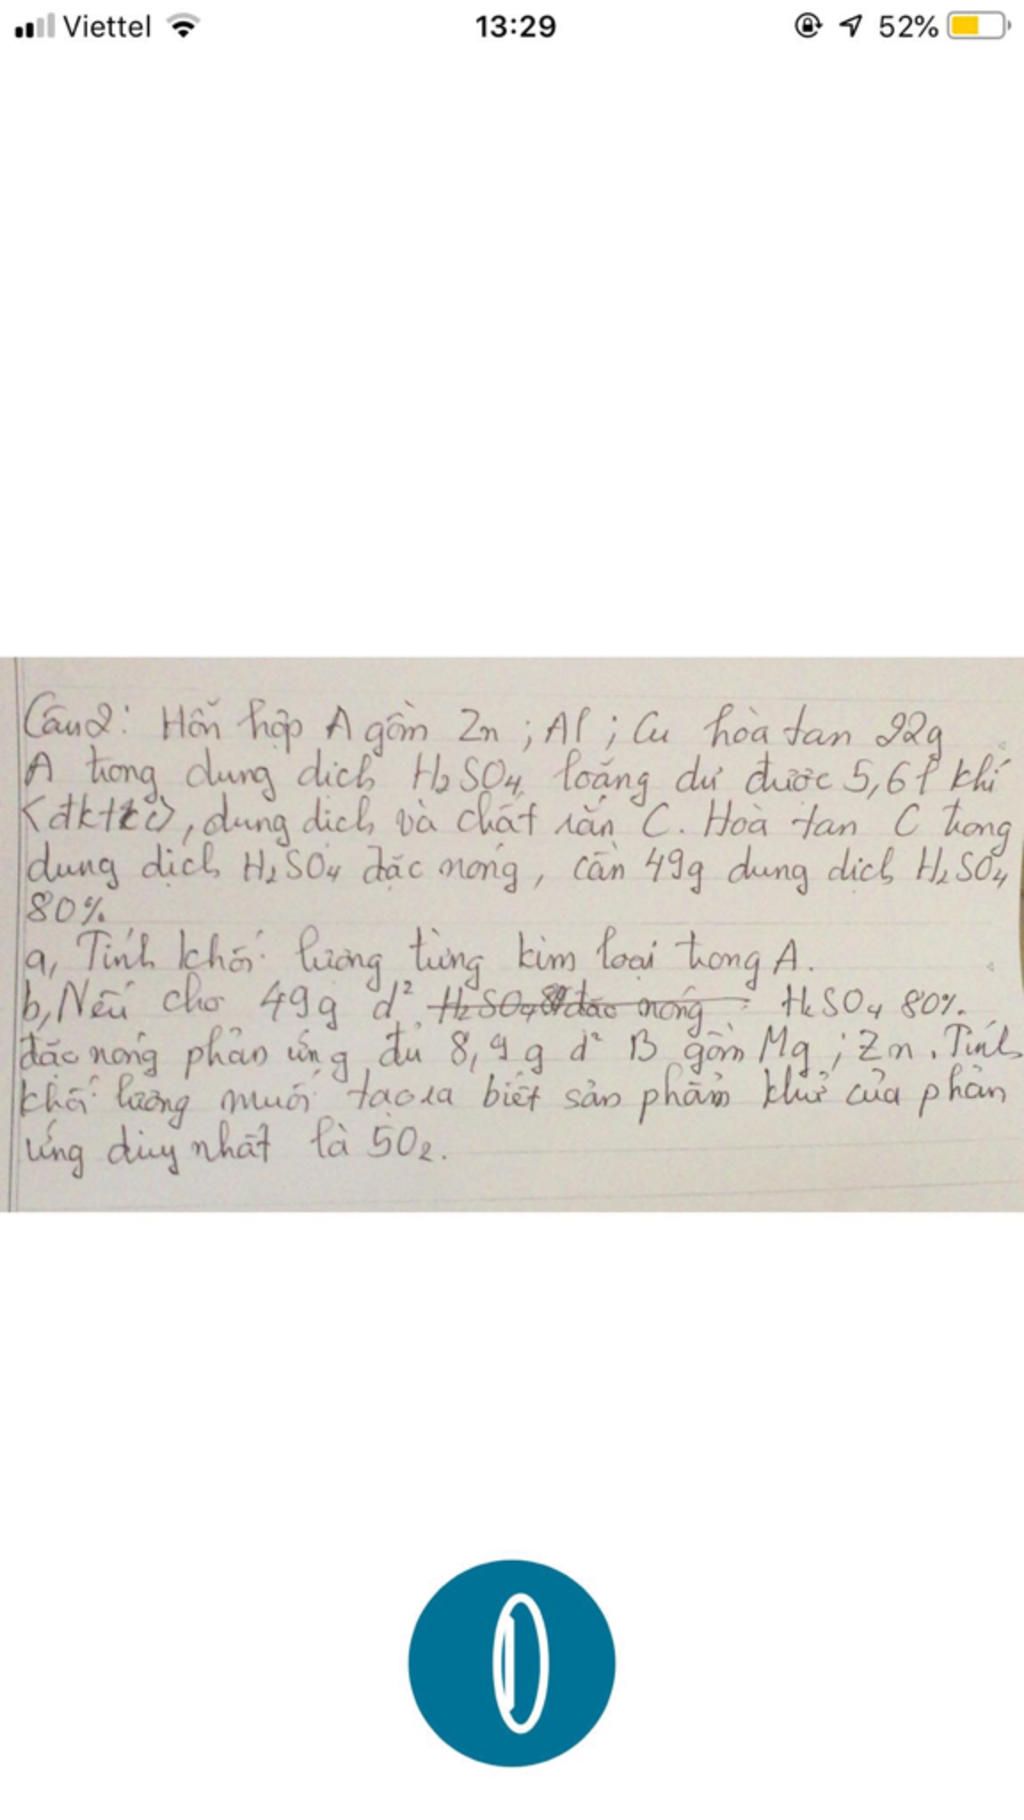 Viettel 13:29 52%
Câu2: Hỗn hợp A gồm Zn ; Al ; Cu hòa tan 22g
A trong dung dịch H₂SO₄ loãng dư được 5,6l khí
<đktc>, dung dịch và chất rắn C. Hoà tan C trong
dung dịch H₂SO₄ đặc nóng, cần 49g dung dịch H₂SO₄
80%
a, Tính khối lượng từng kim loại trong A.
b, Nếu cho 49g d² H₂SO₄ đặc nóng H₂SO₄ 80%.
đặc nóng phản ứng đủ 8,9g d² B gồm Mg ; Zn. Tính
khối lượng muối tạo ra biết sản phẩm khử của phản
ứng duy nhất là SO₂.